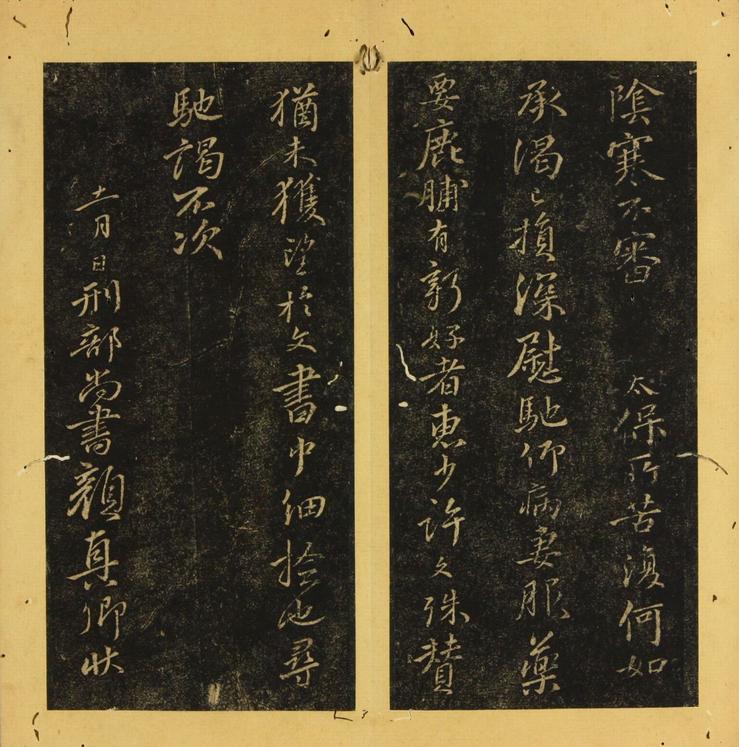 陰寒不審 太保所苦復何如
承渴已損深慰馳仰病妻服藥
要鹿脯有新好者惠少許文殊贊
猶未獲望於文書中細撿也尋
馳謁不次
十一月日刑部尚書顏真卿狀